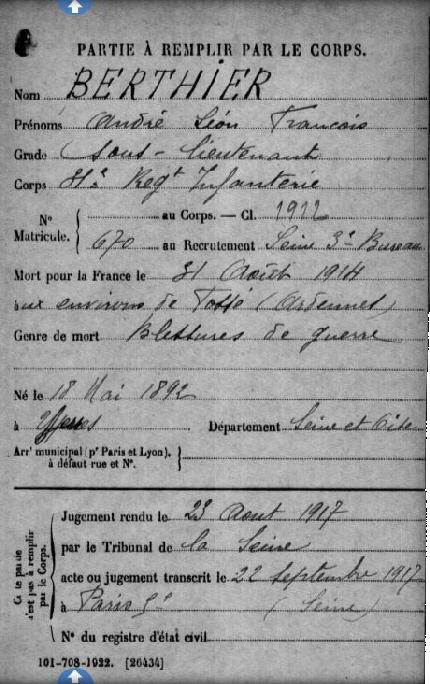 PARTIE À REMPLIR PAR LE CORPS.
Nom BERTHIER
Prénoms André Léon Francois
Grade Sous-lieutenant
Corps Regt Infanterie
No Matricule. { au Corps. — Cl. 1912
670 au Recrutement Seine 3e Bureau
Mort pour la France le 31 Août 1914
aux environs de (Ardennes)
Genre de mort Blessures de guerre
Né le 18 Mai 1892
à Département Seine et Oise
Arrt municipal (pr Paris et Lyon), à défaut rue et No. }
Cette partie n'est pas à remplir par le Corps.
Jugement rendu le 23 Aout 1917
par le Tribunal de la Seine
acte ou jugement transcrit le 22 septembre 1917
à Paris (Seine)
No du registre d'état civil
101-708-1922. [26434]